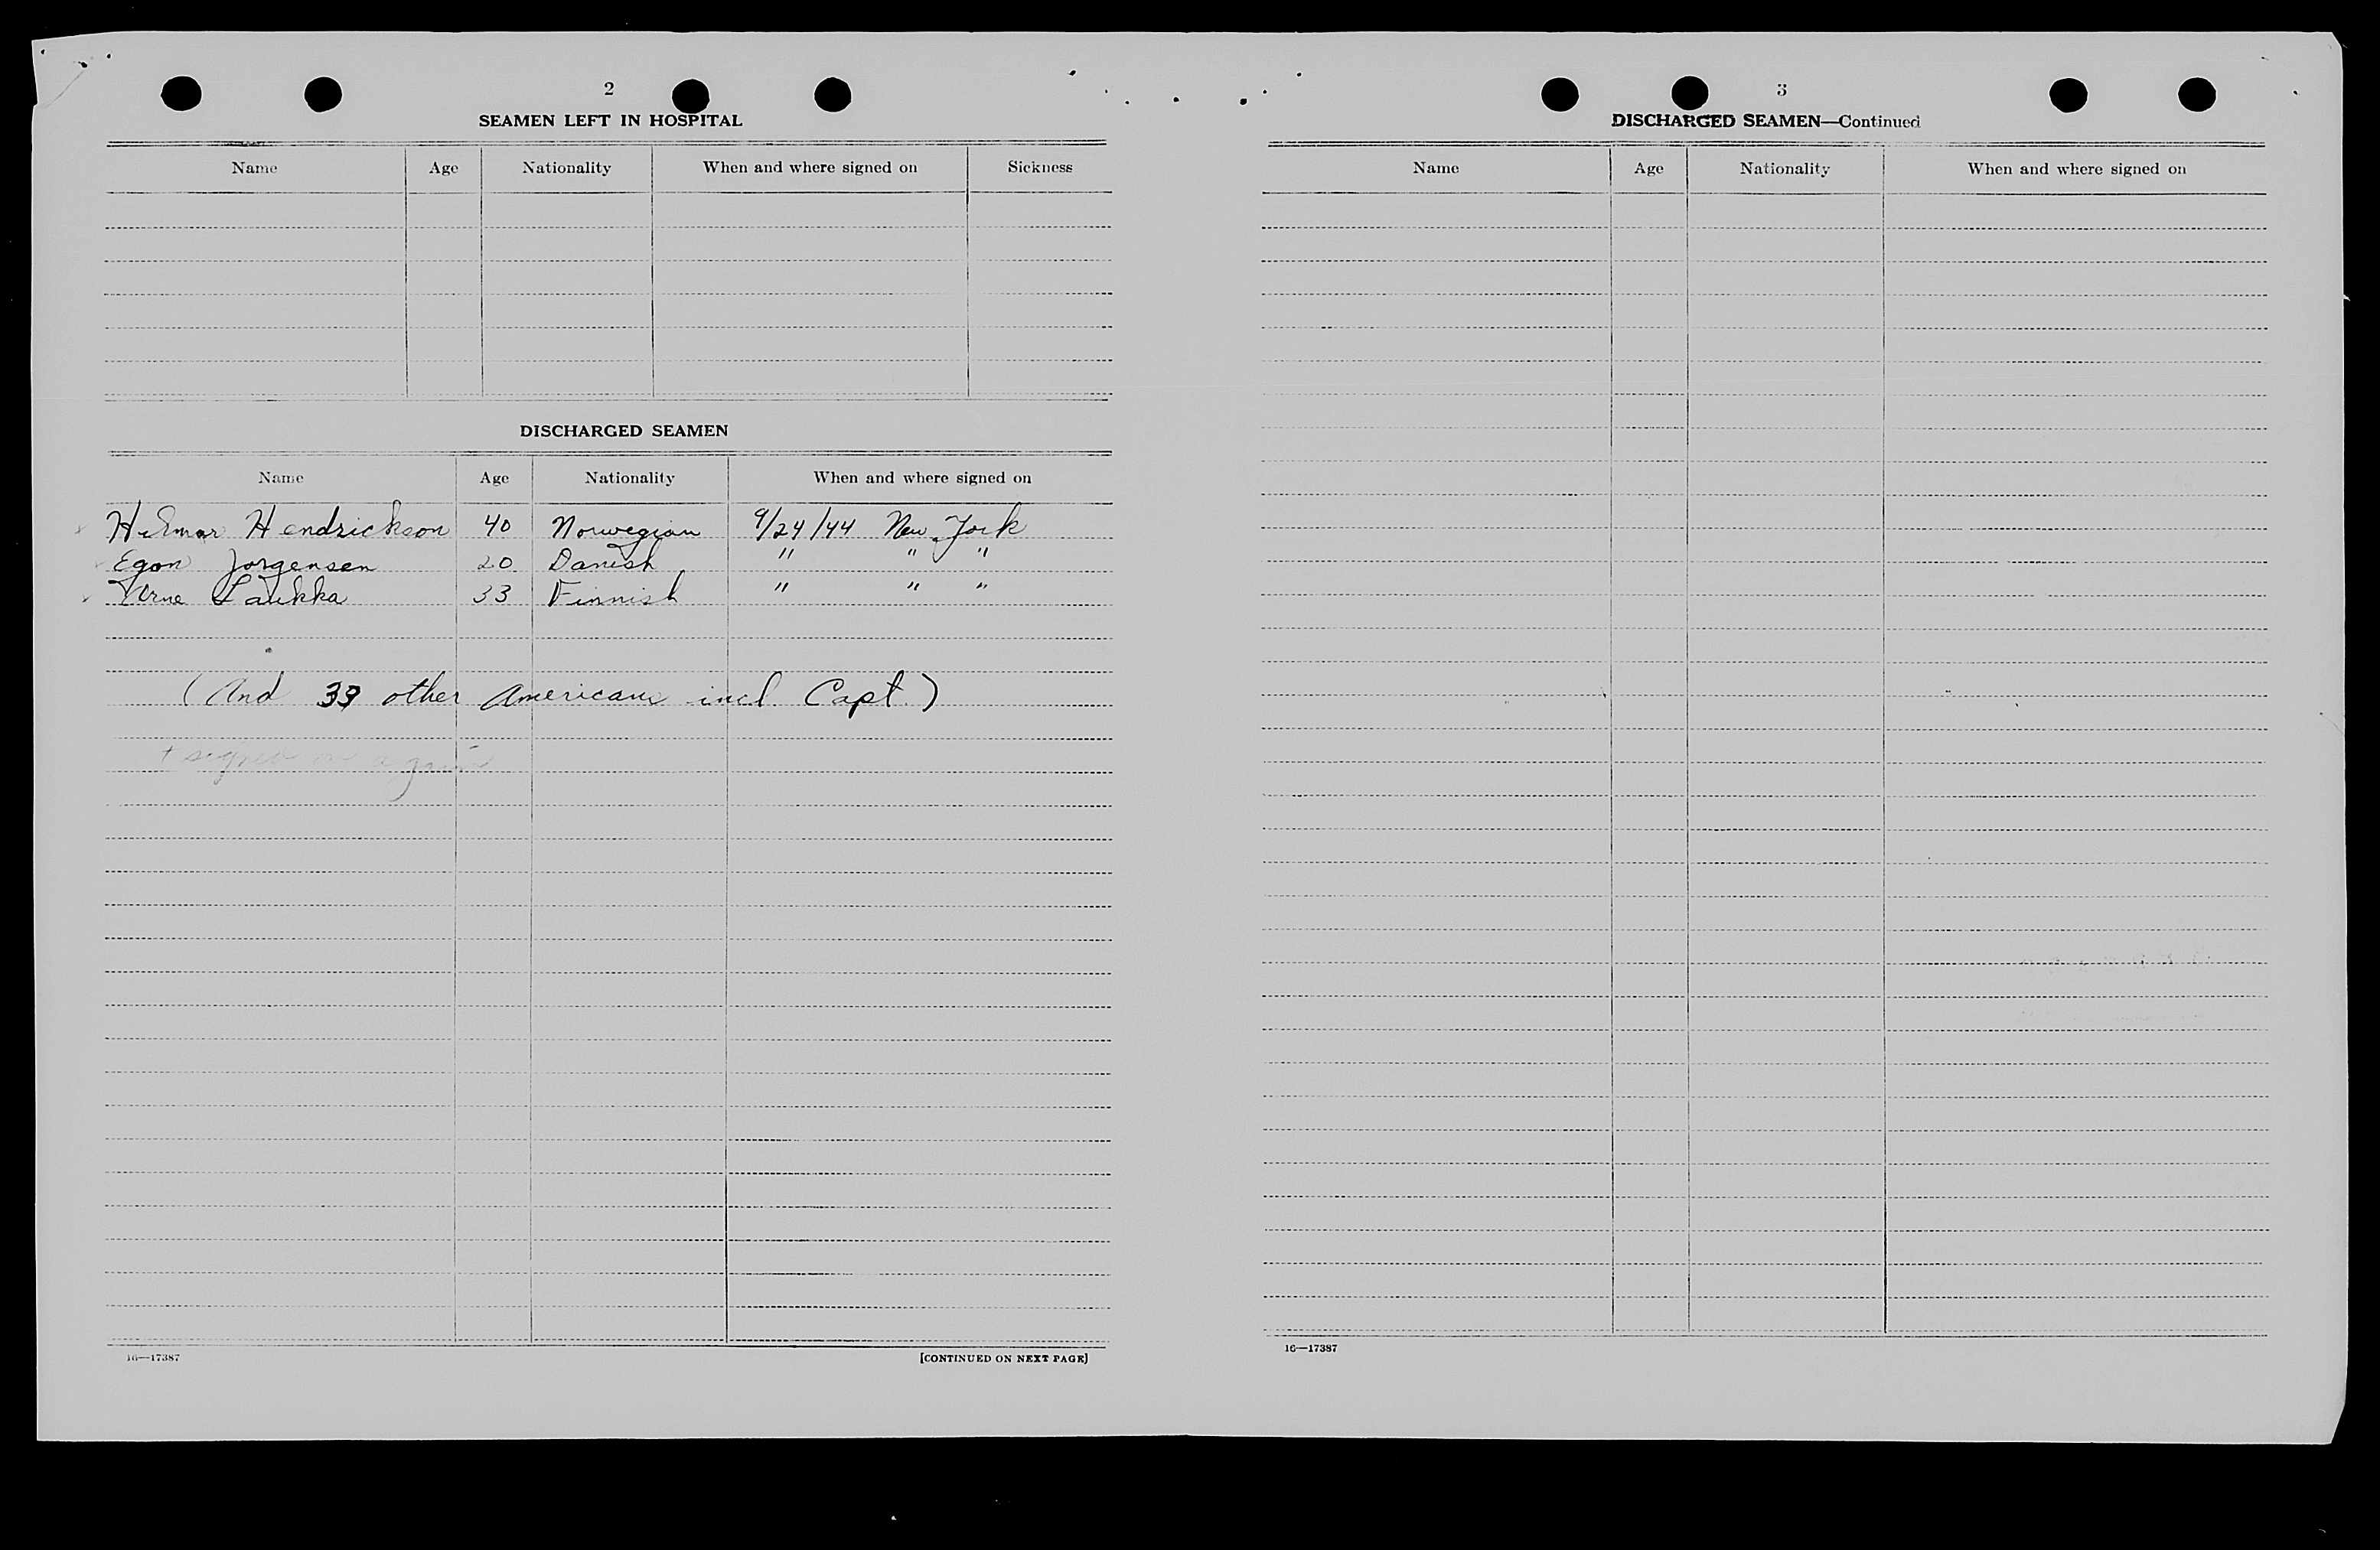 2
SEAMEN LEFT IN HOSPITAL
Name Age Nationality When and where signed on Sickness
DISCHARGED SEAMEN
Name Age Nationality When and where signed on
Hilmar Hendrickson 40 Norwegian 9/24/44 New York
Egon Jorgensen 20 Danish " " "
Laukka 33 Finnish " " "
(And 33 other Americans incl. Capt.)
+ signed on again
16—17387
[CONTINUED ON NEXT PAGE]
3
DISCHARGED SEAMEN—Continued
Name Age Nationality When and where signed on
16—17387